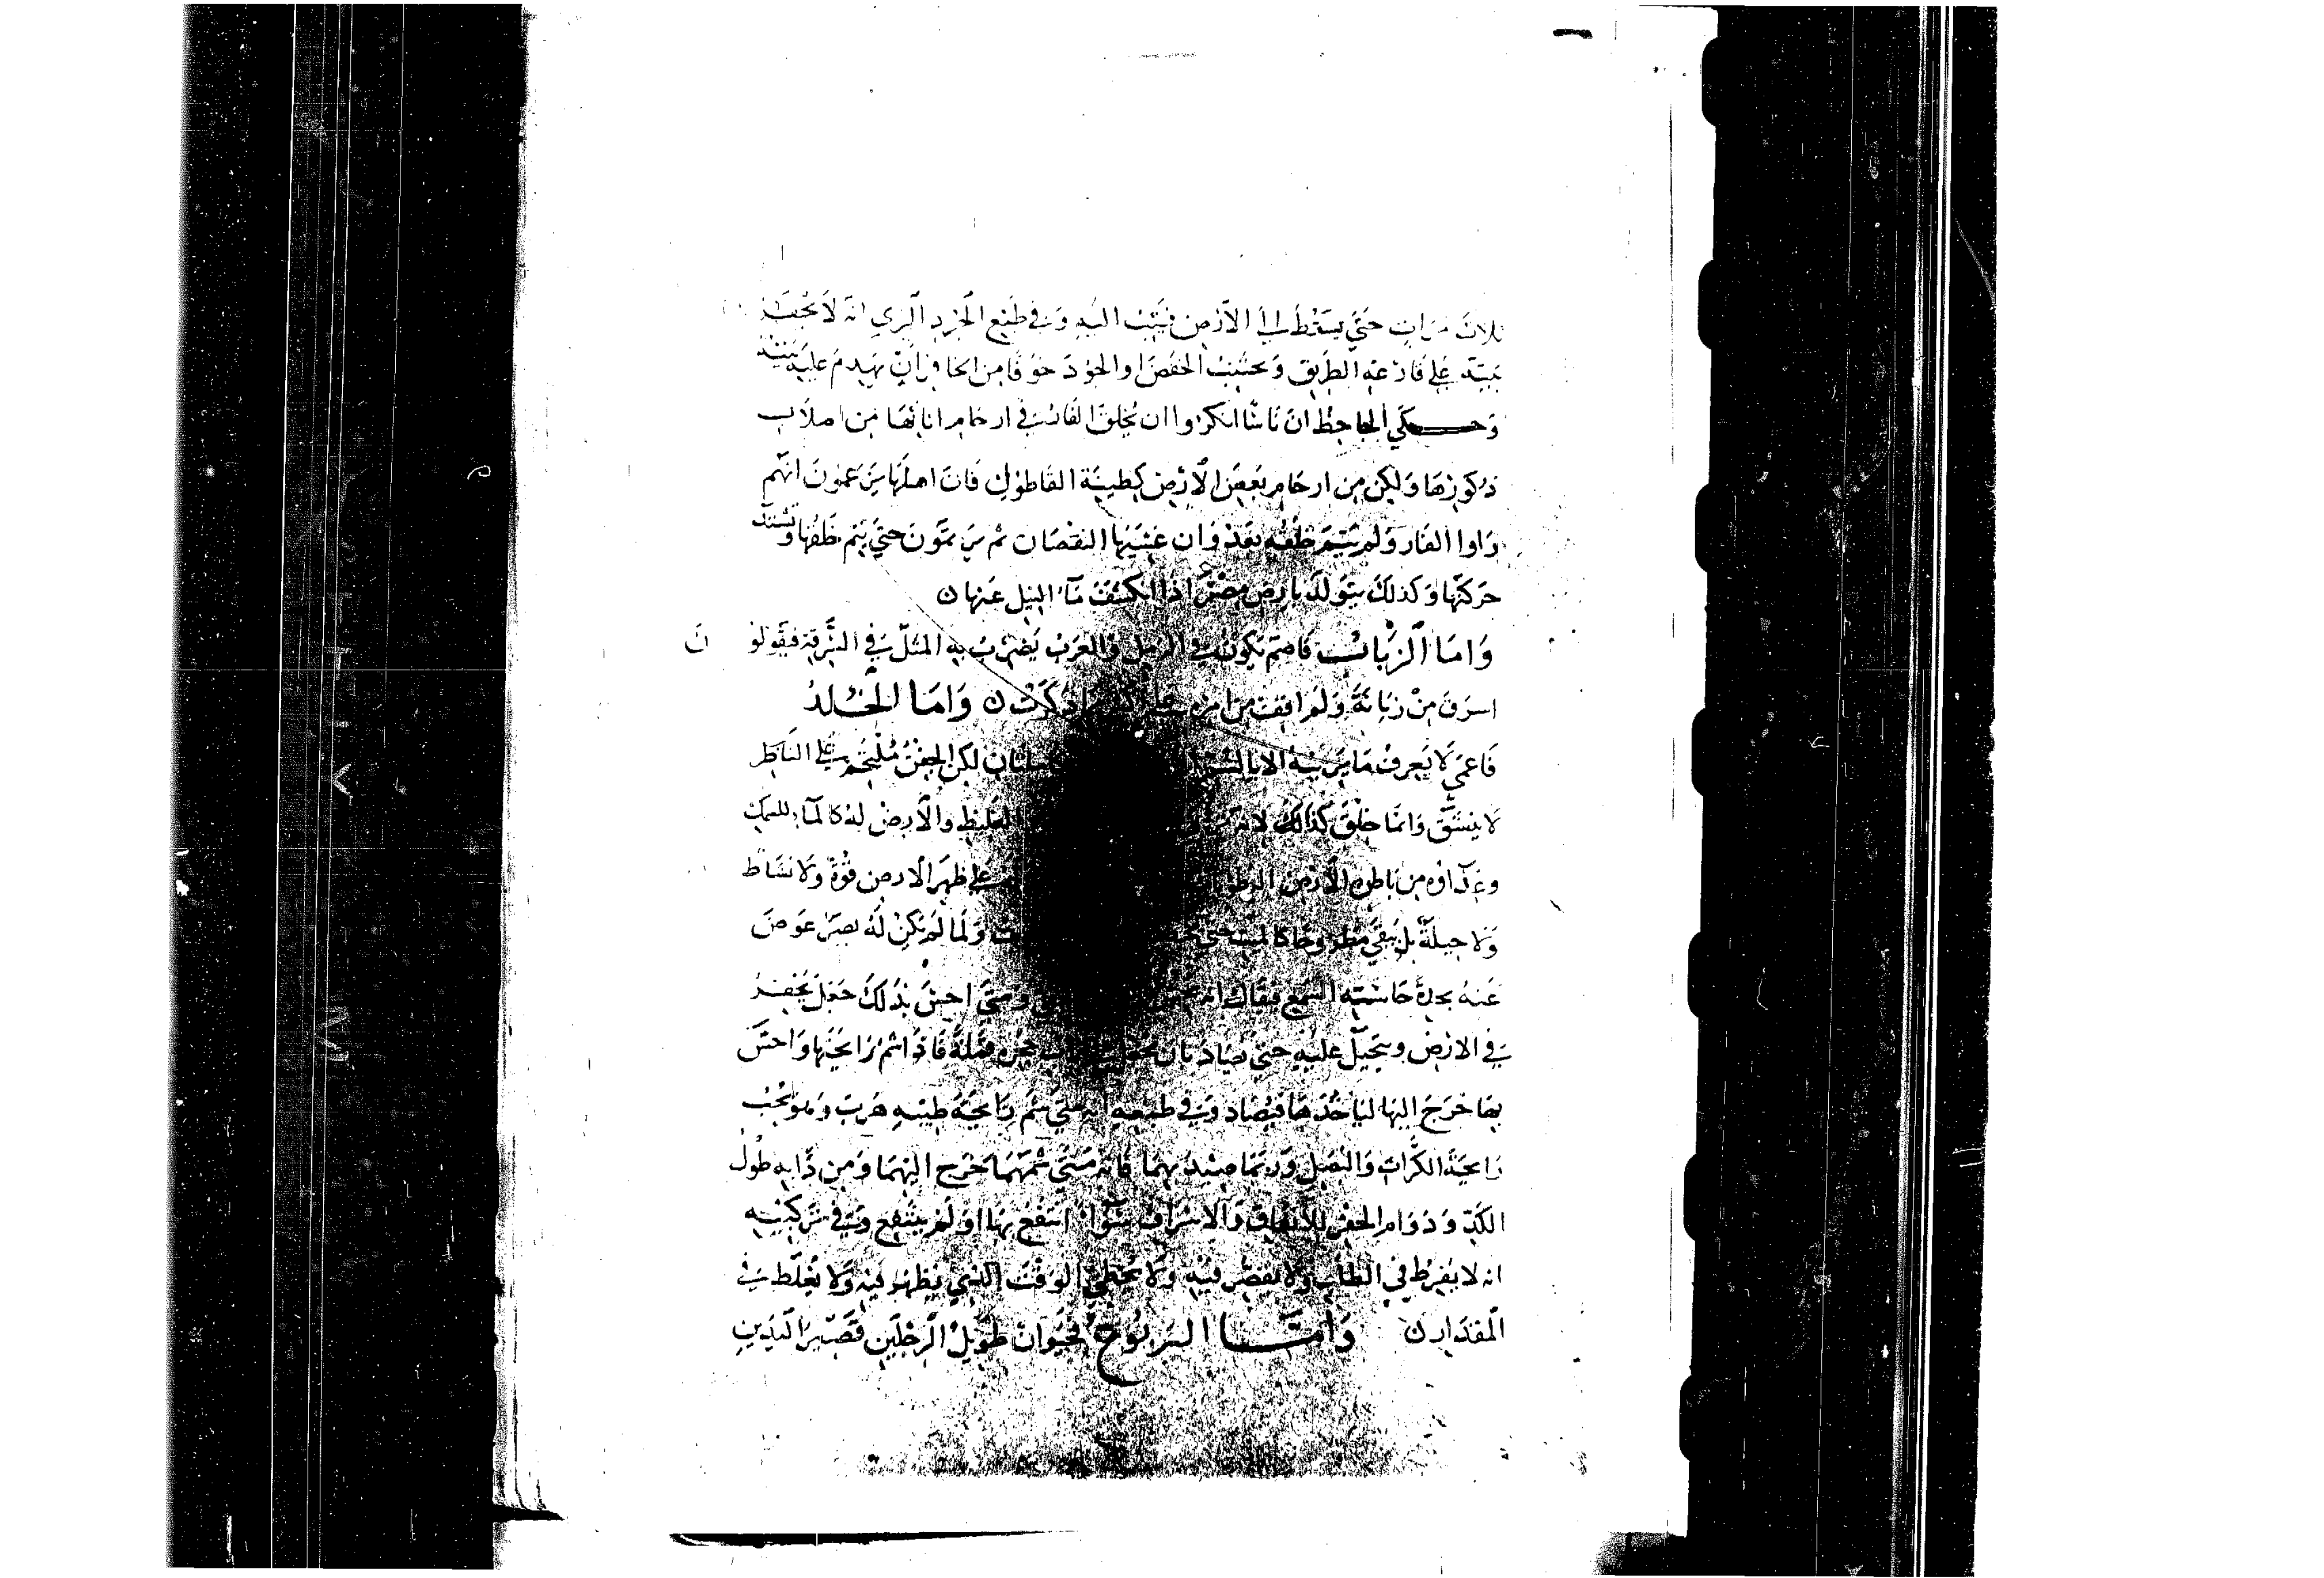 ثلاث مرات حتي يسقط الي الارض فيثب اليه وفي طبع الجرذ البري انه لا يحفر
بيته علي قارعة الطريق ويجتنب الخفض او الجود خوفا من الحافر ان يهدم عليه بيته
وحكي الجاحظ ان ناسا انكروا ان يخلق الفار في ارحام اناثها من اصلاب
ذكورها ولكن من ارحام بعض الارض كطينة القاطول فان اهلها يزعمون انهم
راوا الفار ولم يتم خلقه بعد وان عينيها النقصان ثم يريمون حتي يتم خلقها وتشتد
حركتها وكذلك يتولد بارض مصر اذا انكشف ماء النيل عنها ن
واما الزباب فاصم يكون في الرمل والعرب يضرب به المثل في السرقة فيقولون
اسرق من زبابة ولم اقف من امره علي ن واما الخلد
فاعمي لا يعرف ما يريبه الا بالشم لكن الجفن ملتحم علي الناظر
لا ينشق وانما خلق كذلك لانه الغليظ والارض له كالماء للسمك
وغذاؤه من باطن الارض علي ظهر الارض قوة ولا نشاط
ولا حيلة بل يبقي مطروحا كالميت حتي ولما لم يكن له بصر عوض
عنه بحدة حاسته السمع فقال انه ومتي احس بذلك جعل يحفر
في الارض ويتحيل عليه حتي يصاد بان يجعل جحره قملة فاذا اشم رايحتها واحس
بها خرج اليها لياخذها فيصاد وفي طبعه انه متي شم رايحة طيبه هرب وهو يحب
رايحة الكراث والبصل وربما صيد بهما فانه متي شمهما خرج اليهما ومن دابه طول
الكد ودوام الحفر للانفاق والاسراب سواء انتفع بها او لم ينتفع وفي تركيبه
انه لا يفرط في الطلب ولا يقصر فيه ولا يخطي الوقت الذي يظهر فيه ولا يغلط في
المقدار ن واما اليربوع فحيوان طويل الرجلين قصير اليدين